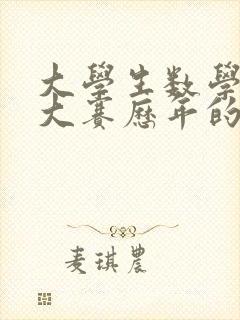 大學生数學
大賽歷年的
麦琪農